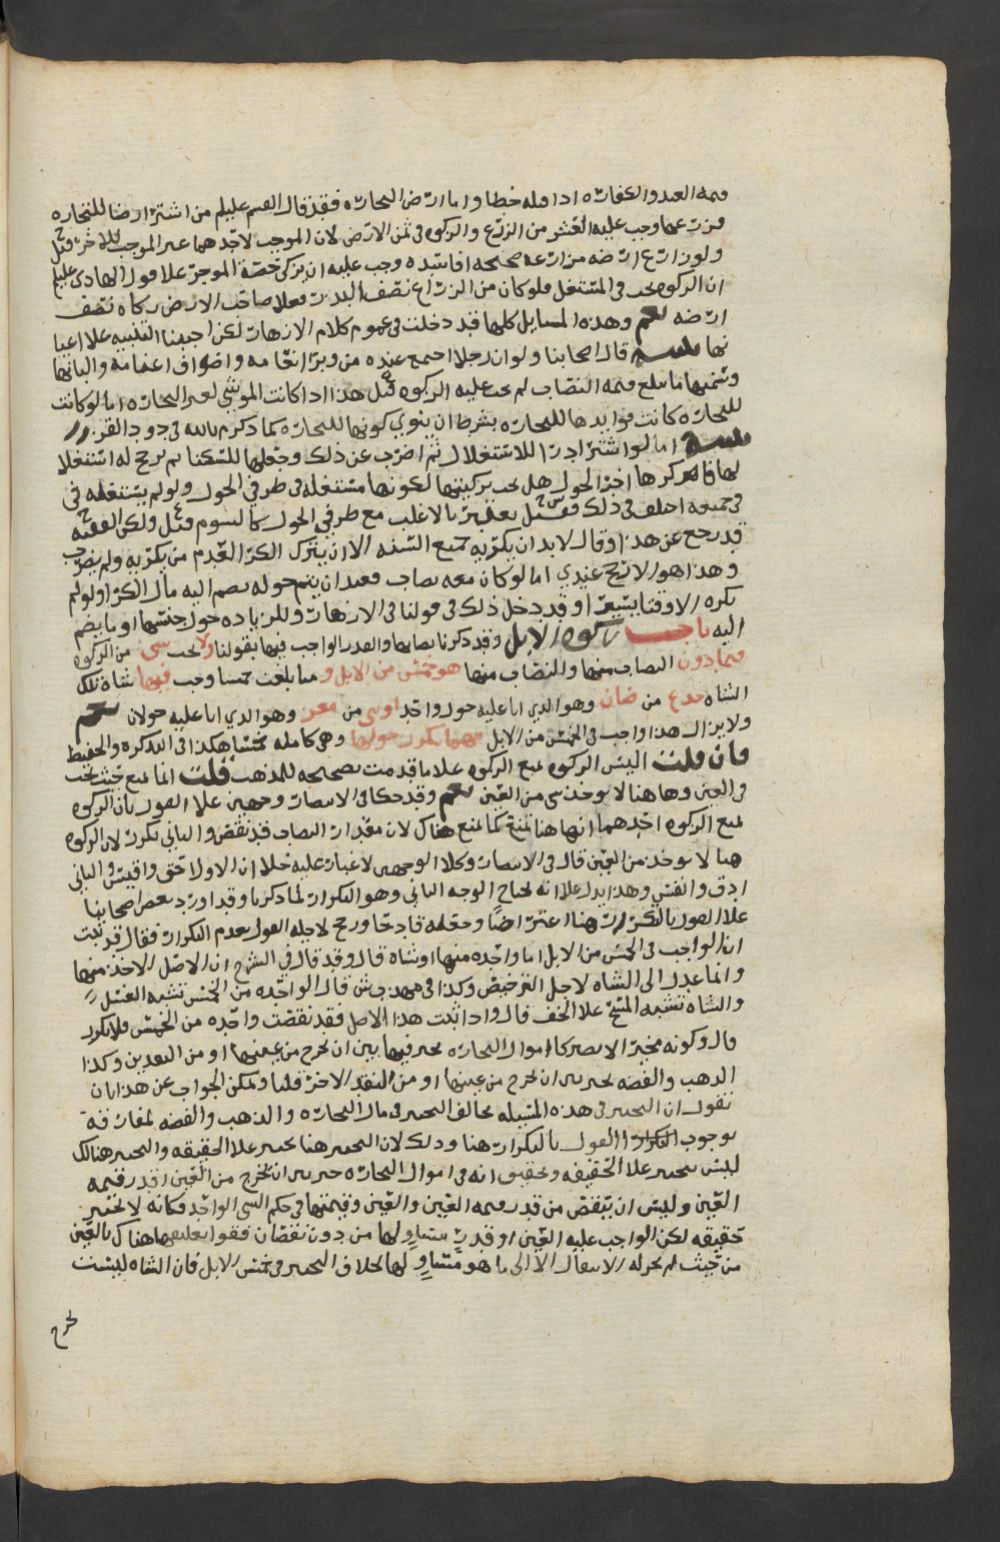 قيمه العبد والكفاره اذا قتله خطا واما ارض التجاره فقد قال القسم عليلم من اشترا ارضا للتجاره
فزرعها وجب عليه العشر من الزرع والزكوه في ثمن الارض لان الموجب لاحدهما غير الموجب للاخر قيل
ولو زارع ارضه مزارعه صحيحه او فاسده وجب عليه ان يزكي حصة الموجر علا قول الهادي عليلم
ان الزكوه تجب في المستغل فلو كان من الزراع نصف البذر فعلا صاحب الارض زكاه نصف
ارضه نعم وهذه المسايل كلها قد دخلت في عموم كلام الازهار لكن احببنا التنبيه علا اعيا
نها قال اصحابنا ولو ان رجلا اجتمع عنده من وبر انعامه واصواف اغنامه والبانها
وسمنها ما يبلغ قيمه النصاب لم تجب عليه الزكوه قيل هذا اذا كانت المواشي لغير التجاره اما لو كانت
للتجاره كانت فوايدها للتجاره بشرط ان ينوي كونها للتجاره كما ذكر م بالله في دود القز
اما لو اشترا دارا للاستغلال ثم اضرب عن ذلك وجعلها للسكنا ثم ترجح له استغلا
لها فاكراها اخر الحول هل تجب تزكيتها لكونها مستغله في طرفي الحول ولو لم يستغله في
في جميعه اختلف في ذلك فقيل يعتبر بالاغلب مع طرفي الحول كالسوم قيل ولكن الفقيه
قد رجع عن هذا وقال لا بد ان يكريه جميع السنه الا ان يترك الكرا لعدم من يكتريه ولم يضرب
وهذا هو الارجح عندي اما لو كان معه نصاب فعند ان يتم حوله يضم اليه مال الكرا ولو لم
يكره الا وقتا يسيرا وقد دخل ذلك في قولنا في الازهار وللزياده حول جنسها وما يضم
اليه باب زكوه الابل وقد ذكرنا نصابها والقدر الواجب فيها بقولنا ولا تجب شي من الزكوه
فيما دون النصاب منها والنصاب منها هو خمس من الابل و متا بلغت خمسا وجب فيها شاه تلك
الشاه جدع من ضان وهو الذي اتا عليه حول واحد او ثني من معز وهو الذي اتا عليه حولان نعم
ولا يزال هذا واجب في الخمس من الابل مهما تكرر حولها وهي كامله خمسا هكذا في التذكره والحفيظ
فان قلت اليس الزكوه تمنع الزكوه علا ما قدمت تصحيحه للمذهب قلت انما تمنع حيث تجب
في العين وهاهنا لا يوخذ شي من العين نعم وقد حكا في الانتصار وجهين علا القول بان الزكوه
تمنع الزكوه احدهما انها هنا تمنع كما تمنع هناك لان مقدار النصاب قد نقص والثاني تكرر لان الزكوه
هنا لا توخذ من العين قال في الانتصار وكلا الوجهين لا غبار عليه خلا ان الاول احق واقيس والثاني
ادق وانفس وهذا يدل علا انه يحتاج الوجه الثاني وهو التكرار لما ذكرنا وقد اورد بعض اصحابنا
علا القول بالتكرار هنا اعتراضا وجعله قادحا ورجح لاجله القول بعدم التكرار فقال قد ثبت
ان الواجب في الخمس من الابل اما واحده منها او شاه قال وقد قال في الشرح ان الاصل الاخذ منها
وانما عدل الى الشاه لاجل الترخيص وكذا في مهذب ش قال الواحده من الخمس تشبه الغسل
والشاه تشبه المسح علا الخف قال واذا ثبت هذا الاصل فقد نقصت واحده من الخمس فلا تكرر
قال وكونه مخيرا لا يضر كاموال التجاره يخير فيها بين ان يخرج من عينها او من النقدين وكذا
الذهب والفضه تخير بين ان يخرج من عينها او من النقد الاخر قلنا ويمكن الجواب عن هذا بان
نقول ان التخيير في هذه المسئله يخالف التخيير في مال التجاره والذهب والفضه لمفارقة
بوجوب القول بالتكرار هنا وذلك لان التخيير هنا تخيير علا الحقيقه والتخيير هنالك
ليس تخيير علا الحقيقه وتحقيق انه في اموال التجاره خير بين ان يخرج من العين او قدر قيمه
العين وليس ان ينقص من قدر قيمه العين والعين وقيمتها في حكم الشي الواحد فكانه لا تخيير
حقيقه لكن الواجب عليه العين او قدر مساو لها من دون نقصان فقوا تعلقها هناك بالعين
من حيث لم يجز له الانتقال الا الى ما هو مساو لها بخلاف التخيير في خمس الابل فان الشاه ليست
تخرج